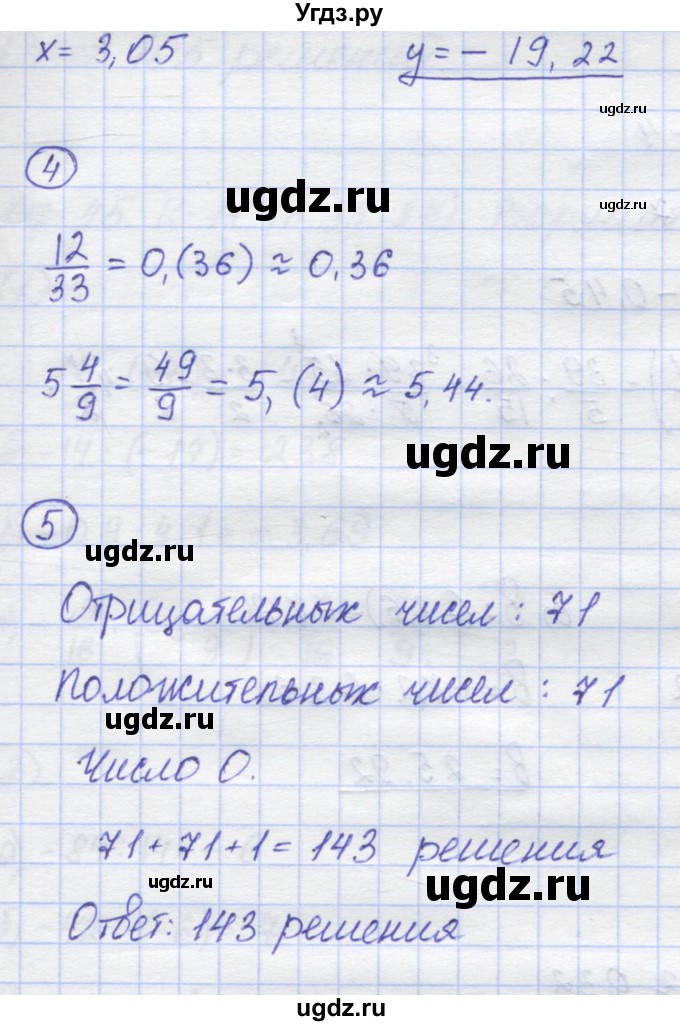 Угдз.ру
x = 3,05 y = - 19,22
ugdz.ru
4
ugdz.ru
ugdz.ru
12/33 = 0,(36) ≈ 0,36
5 4/9 = 49/9 = 5,(4) ≈ 5,44.
ugdz.ru
5
ugdz.ru
Отрицательных чисел : 71
Положительных чисел : 71
ugdz.ru
Число 0.
71 + 71 + 1 = 143 решения
ugdz.ru
ugdz.ru
Ответ: 143 решения
ugdz.ru